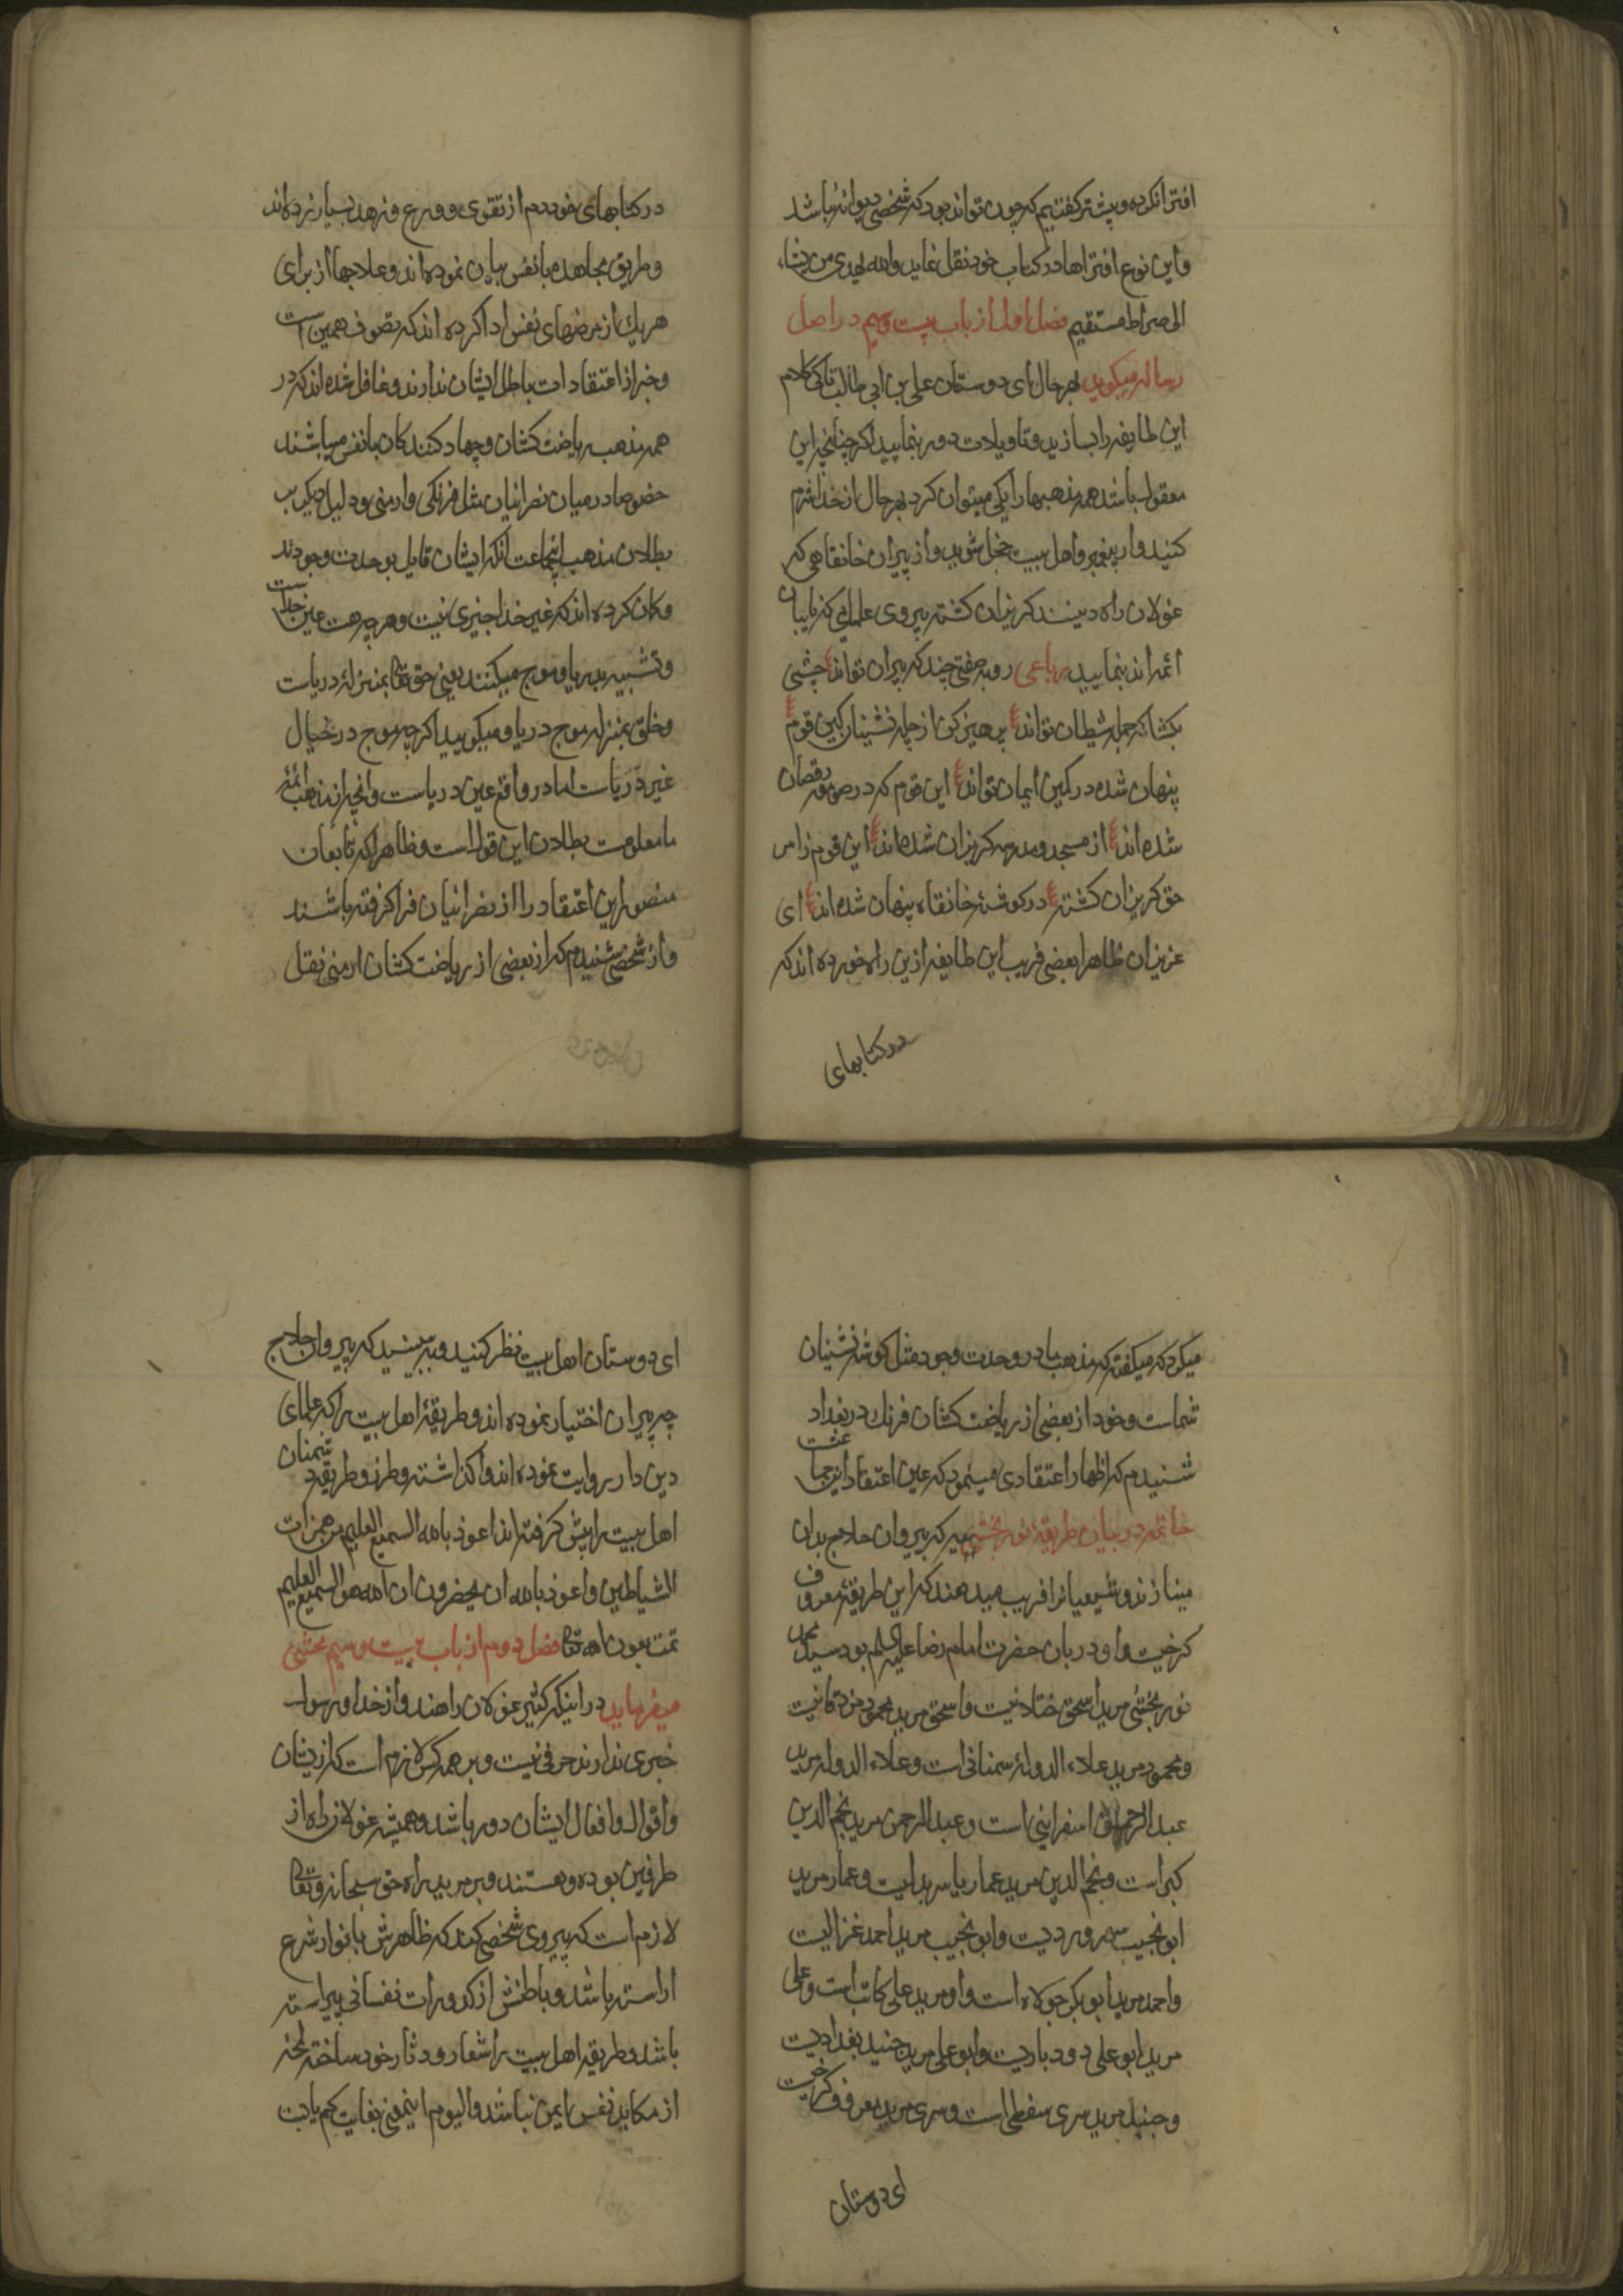 افترا نکرده و پیشتر کفتیم که چون تواند بود که شخصی دیوانه باشد
و این نوع افتراها در کتاب خود نقل نماید والله یهدی من یشاء
الی صراط مستقیم فصل اول از باب بیست و سیم در اصل
رساله میکوید بهر حال ای دوستان علی بن ابی طالب تا کی کلام
این طایفه را بسازید و تاویلات دور بنمایید اکر چنانچه این
معقول باشد همه مذهبها را یکی میتوان کرد بهر حال از خدا شرم
کنید و از پیغمبر و اهل بیت خجل شوید و از پیران خانقاهی که
غولان راه دینند کریزان کشته پیروی علمایی که نایبان
ائمه اند بنمایید رباعی روبه صفتی چند که پیران تواند چشمی
بکشا که جمله شیطان تواند پرهیز کن از چله نشینان کین قوم
پنهان شده در کمین ایمان تواند این قوم که در صومعه رقصان
شده اند از مسجد و مدرسه کریزان شده اند این قوم ز امر
حق کریزان کشته در کوشهٔ خانقاه پنهان شده اند ای
عزیزان ظاهرا بعضی فریب این طایفه ازین راه خورده اند که
در کتابهای
در کتابهای خود دم از تقوی و ورع و زهد بسیار زده اند
و طریق مجاهده با نفس بیان نموده اند و علاجها از برای
هر یك از مرضهای نفس ادا کرده اند که تصوف همین است
و خبر از اعتقادات باطل ایشان ندارند و غافل شده اند که در
همه مذهب ریاضت کشان و جهاد کنندکان با نفس میباشند
خصوصا در میان نصرانیان مثل فرنکی و ارمنی و دلیل دیکر بر
بطلان مذهب اینجماعت انکه ایشان قایل بوحدت وجودند
و کمان کرده اند که غیر خدا چیزی نیست و هر چه هست عین خداست
و تشبیه بدریا و موج میکنند یعنی حق تعالی بمنزلهٔ دریاست
و خلق بمنزله موج دریا و میکویند اکر چه موج در خیال
غیر دریاست اما در واقع عین دریاست و انچه از مذهب ائمهٔ
ما معلومست بطلان این قول است و ظاهرا که تابعان
منصور این اعتقاد را از نصرانیان فرا کرفته باشند
و از شخصی شنیدم که از بعضی از ریاضت کشان ارمنی نقل
میکرد که میکفته که مذهب ما در وحدت وجود مثل کوشه نشینان
شماست و خود از بعضی از ریاضت کشان فرنك در بغداد
شنیدم که اظهار اعتقادی مینمود که عین اعتقاد اینجماعتست
خاتمه در بیان طریقهٔ نور بخشیه که پیروان حلاج بدان
مینازند و شیعیانرا فریب میدهند که این طریقهٔ معروف
کرخیست و او دربان حضرت امام رضا علیه السلم بود سید محمد
نور بخشی مرید اسحق ختلانیست و اسحق مرید محمود مزدقانیست
و محمود مرید علاء الدوله سمنانی است و علاء الدوله مرید
عبد الرحمن اسفراینی است و عبد الرحمن مرید نجم الدین
کبراست و نجم الدین مرید عمار یاسر بدلیست و عمار مرید
ابو نجیب سهروردیست و ابو نجیب مرید احمد غزالیست
و احمد مرید ابو بکر جولاه است و او مرید علی کاتب است و علی
مرید ابو علی رودباریست و ابو علی مرید جنید بغدادیست
و جنید مرید سری سقطی است و سری مرید معروف کرخیست
ای دوستان
ای دوستان اهل بیت نظر کنید و ببینید که پیروان حلاج
چه پیران اختیار نموده اند و طریقهٔ اهل بیت را که علمای
دین دار روایت نموده اند واکذاشته و طرز و طریقه دشمنان
اهل بیت را پیش کرفته اند اعوذ بالله السمیع العلیم من همزات
الشیاطین و اعوذ بالله ان یحضرون ان الله هو السمیع العلیم
تمت بعون الله تعالی فصل دوم از باب بیست و سیم محشی
میفرماید در اینکه کثیر غولان راهند و از خدا و رسول
خبری ندارند حرفی نیست و بر همه کس لازم است که ازیشان
و اقوال و افعال ایشان دور باشد و همیشه غولان راه از
طرفین بوده و هستند و بر مرید راه حق سبحانه و تعالی
لازم است که پیروی شخصی کند که ظاهرش بانوار شرع
اراسته باشد و باطنش از کدورات نفسانی پیراسته
باشد و طریقه اهل بیت را شعار و دثار خود ساخته لحظه
از مکاید نفس ایمن نباشد و الیوم اینمعنی بغایت کم یابست